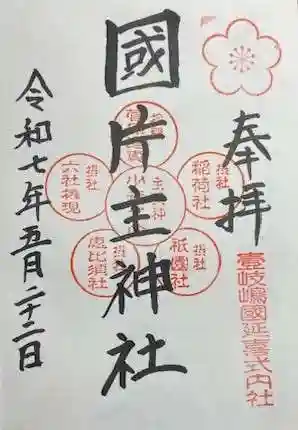 奉拝
壹岐嶋國延喜式内社
國片主神社
摂社
稲荷社
摂社
祇園社
摂社
恵比須社
摂社
六社権現
令和七年五月二十二日